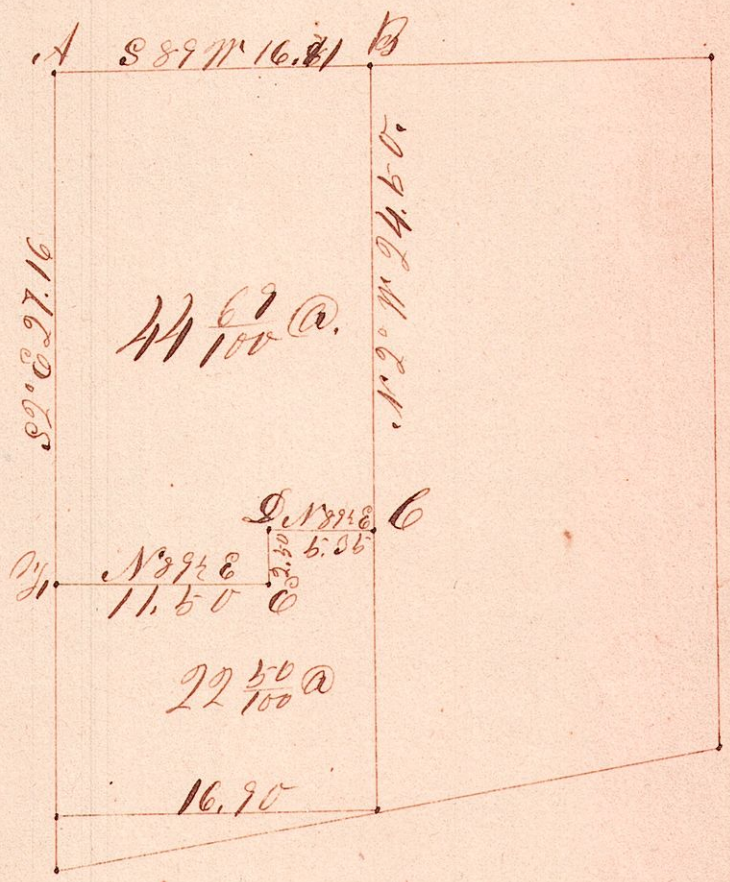 A S 89 W 16.81 B
S 2° E 27.16
N. 2° W 24.50.
44 69/100 @.
D N 89½ E C
5.35
N 89½ E
11.50 E
22 50/100 @
16.90